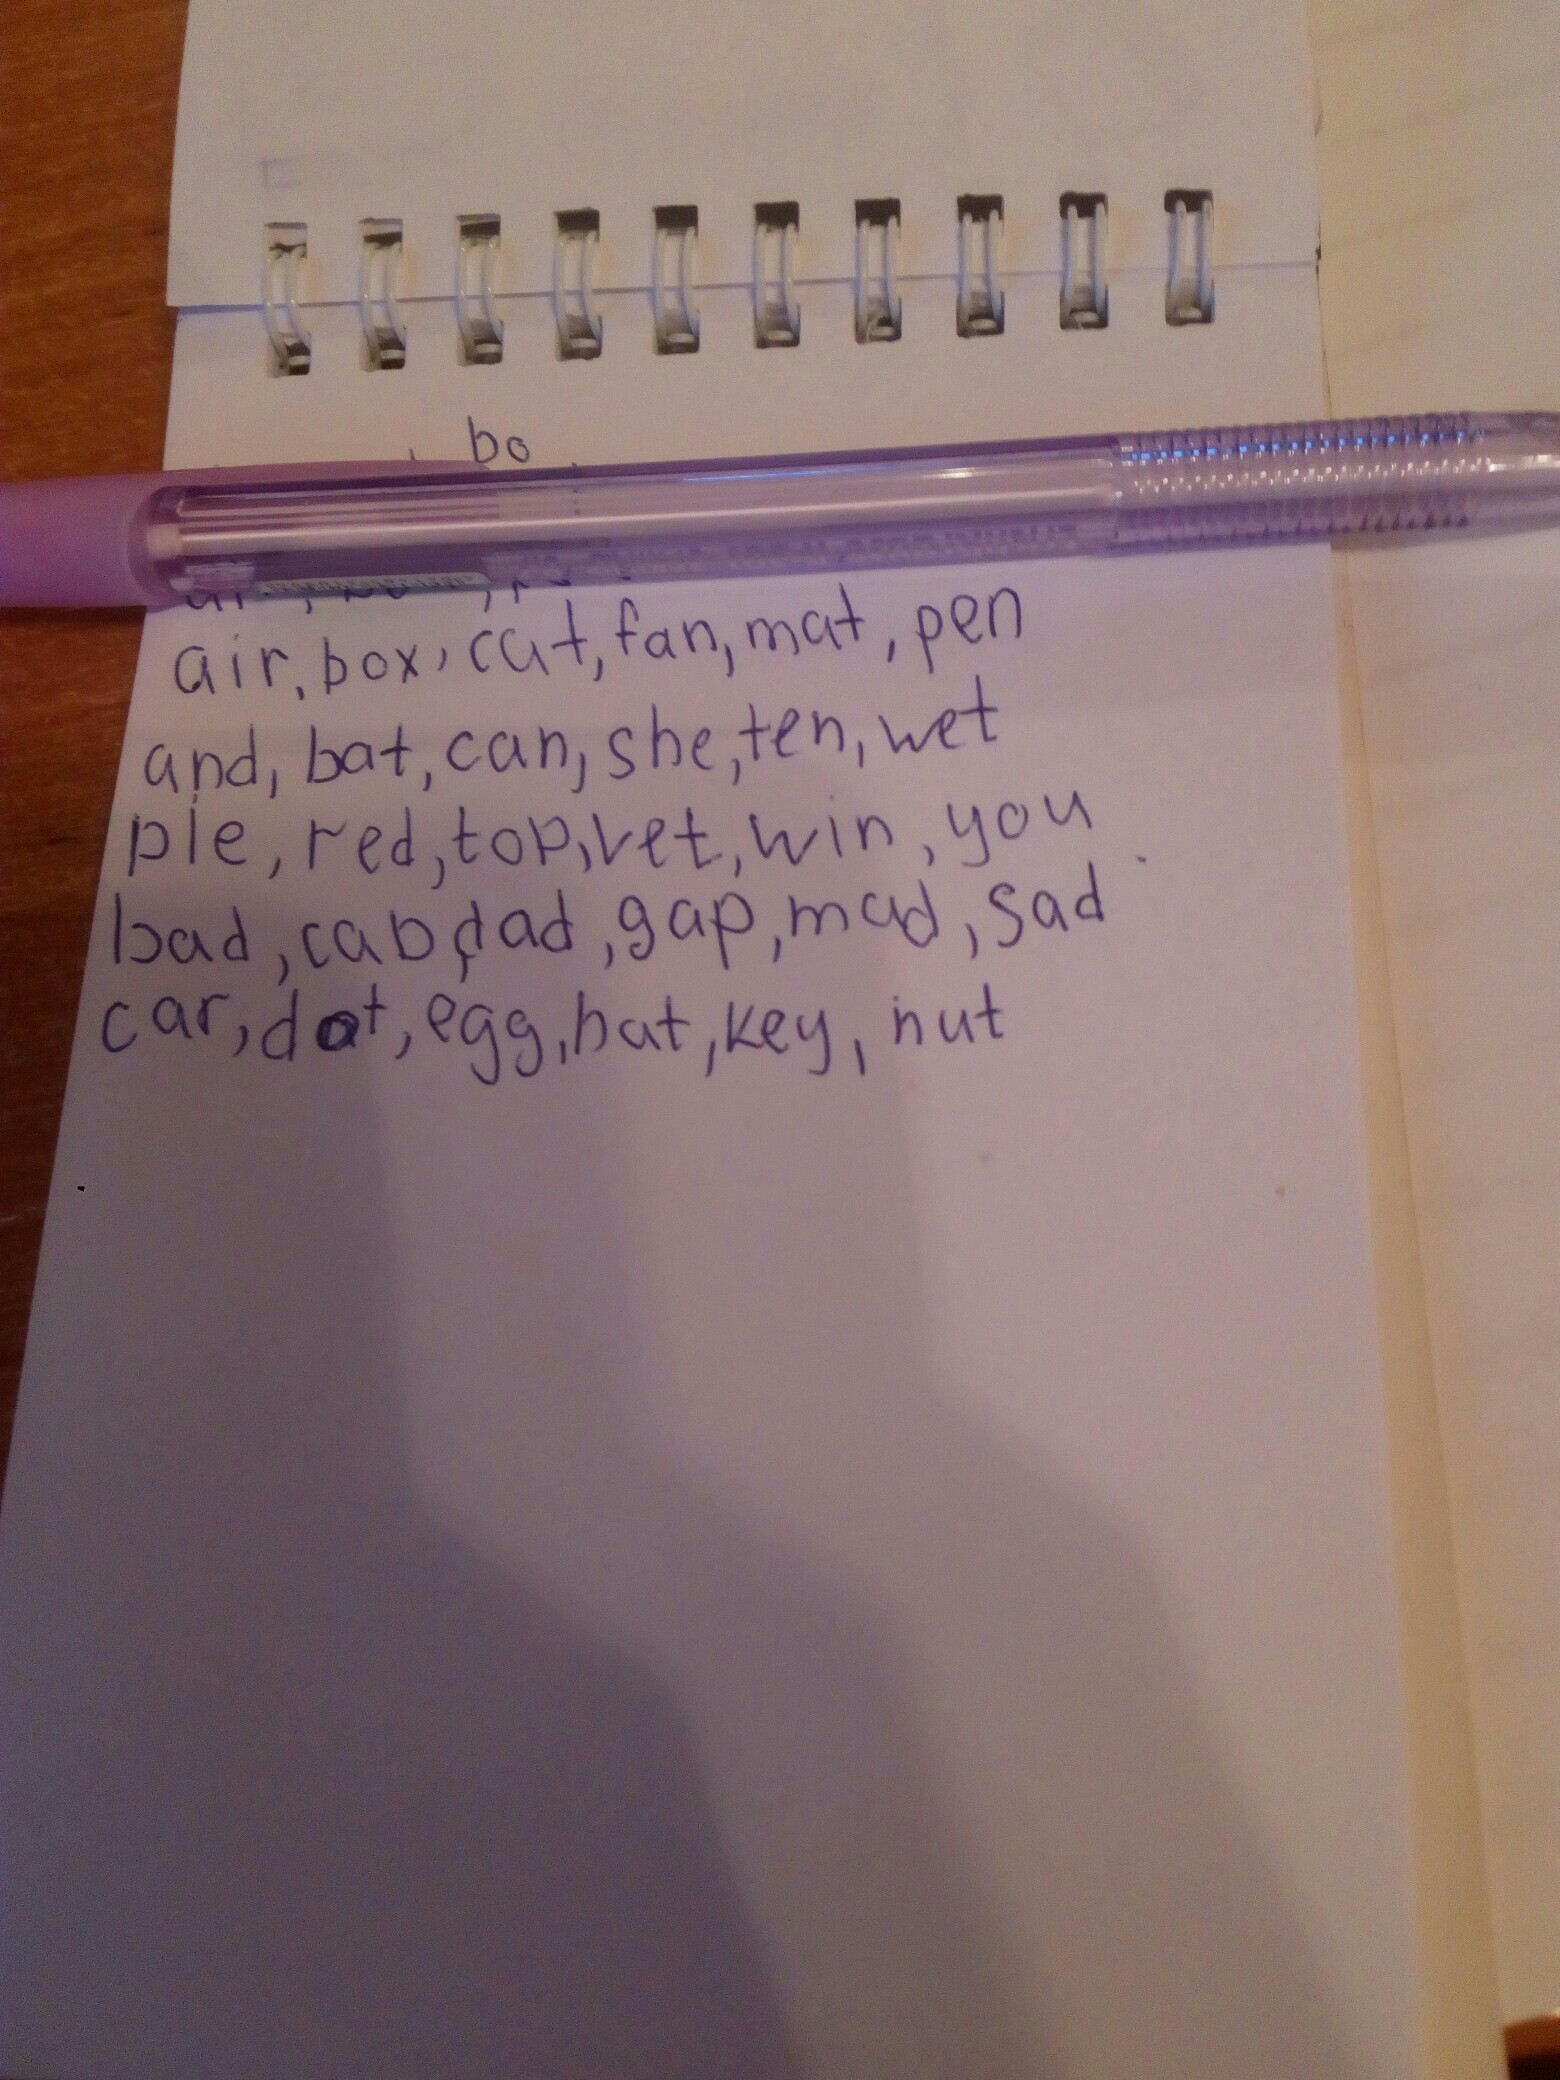 bo
air, box, cat, fan, mat, pen
and, bat, can, she, ten, wet
pie, red, top, vet, win, you
bad, cab, dad, gap, mad, sad
car, dot, egg, hat, key, nut